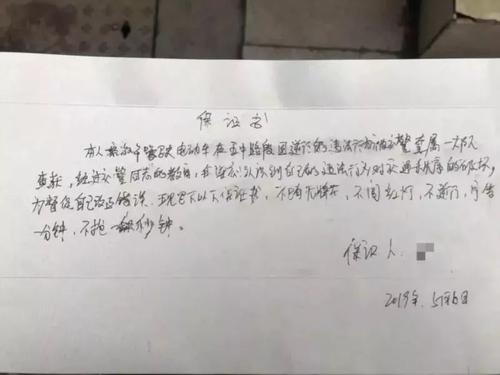 保证书
本人 驾驶电动车在 中路段因逆行的违法行为被交警直属一大队
查获,经过交警同志的教育,我深刻认识到自己的违法行为对交通秩序的破坏,
为督促自己改正错误,现写下以下保证书,不 ,不闯红灯,不逆行,宁等
一分钟,不抢一秒钟。
保证人
2019年5月6日